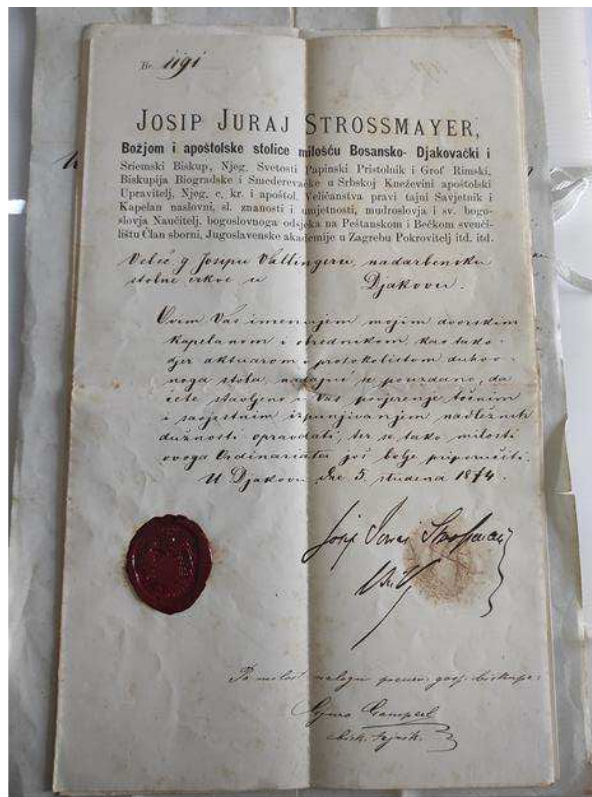 Br. 1191
JOSIP JURAJ STROSSMAYER,
Božjom i apoštolske stolice milošću Bosansko- Djakovački i
Sriemski Biskup, Njeg. Svetosti Papinski Pristolnik i Grof Rimski,
Biskupija Biogradske i Smederevačke u Srbskoj Kneževini apoštolski
Upravitelj, Njeg. c. kr. i apoštol. Veličanstva pravi tajni Savjetnik i
Kapelan naslovni, sl. znanosti i umjetnosti, mudroslovja i sv. bogo-
slovja Naučitelj, bogoslovnoga odsjeka na Peštanskom i Bečkom sveuči-
lištu Član sborni, Jugoslavenske akademije u Zagrebu Pokrovitelj itd. itd.
Veleč. g. Josipu Vallingeru, nadarbeniku
stolne crkve u Djakovu.
Ovim Vas imenujem mojim dvorskim
kapelanom i obrednikom, kao tako-
djer aktuarom i protokolistom duhov-
noga stola, nadajuć se pouzdano, da
ćete stavljeno u Vas povjerenje točnim
i savjestnim izpunjivanjem nadležnih
dužnosti opravdati, ter se tako milosti
ovoga Ordinariata još bolje priporučiti.
U Djakovu dne 5. studena 1874.
Josip Juraj Strossmayer
Po milost. nalogu preuzv. gosp. biskupa:
Gjuro
bisk. tajnik.